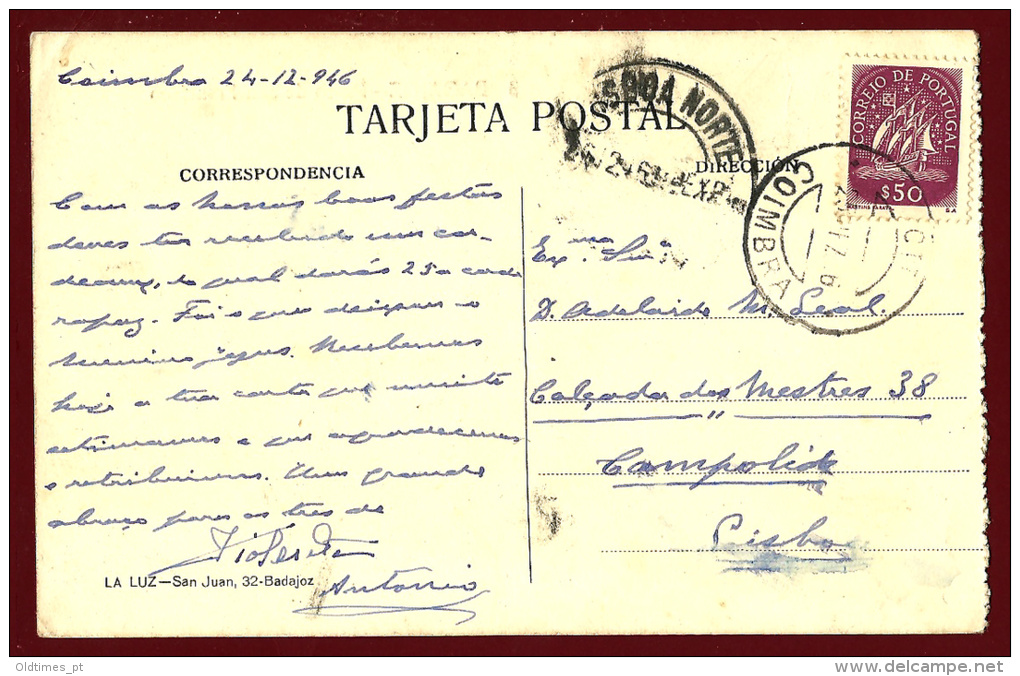 Coimbra 24-12-946
TARJETA POSTAL
CORREIO DE PORTUGAL
$50
LISBOA NORTE
COIMBRA
CORRESPONDENCIA
DIRECCIÓN
Com as nossas boas festas
deves ter recebido um cor-
do qual darás 25 a cada
rapaz. Foi o que
Recebemos
hoje a tua carta que muito
estimamos e que agradecemos
e retribuimos. Um grande
abraço para os tres de
Antonio
LA LUZ—San Juan, 32-Badajoz
Exma Sra
D. Adelaide M. Leal.
Calçada dos Mestres 38
Campolide
Lisboa
Oldtimes_pt
www.delcampe.net